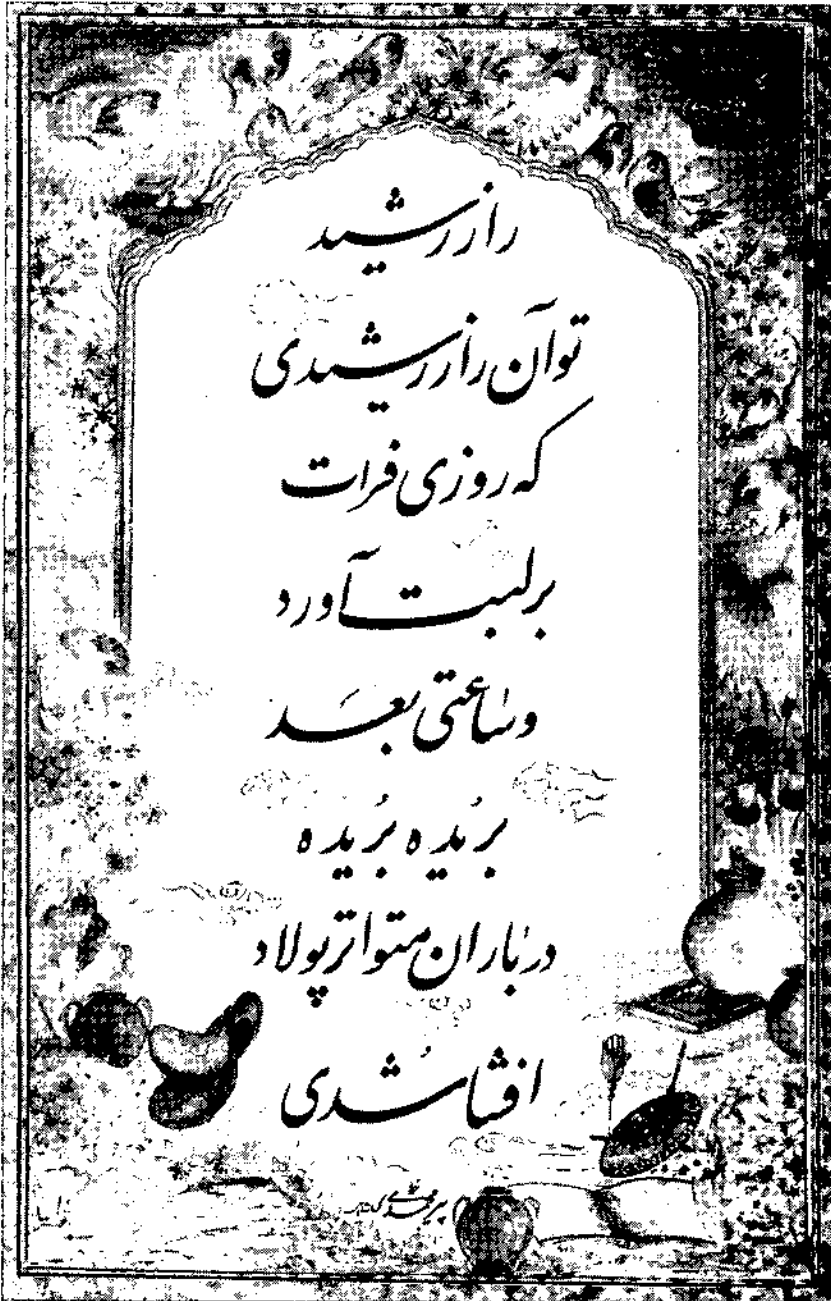 راز رشید
تو آن راز رشیدی
که روزی فرات
بر لبت آورد
و ساعتی بعد
بریده بُریده
در باران متواتر پولاد
افشا شُدی